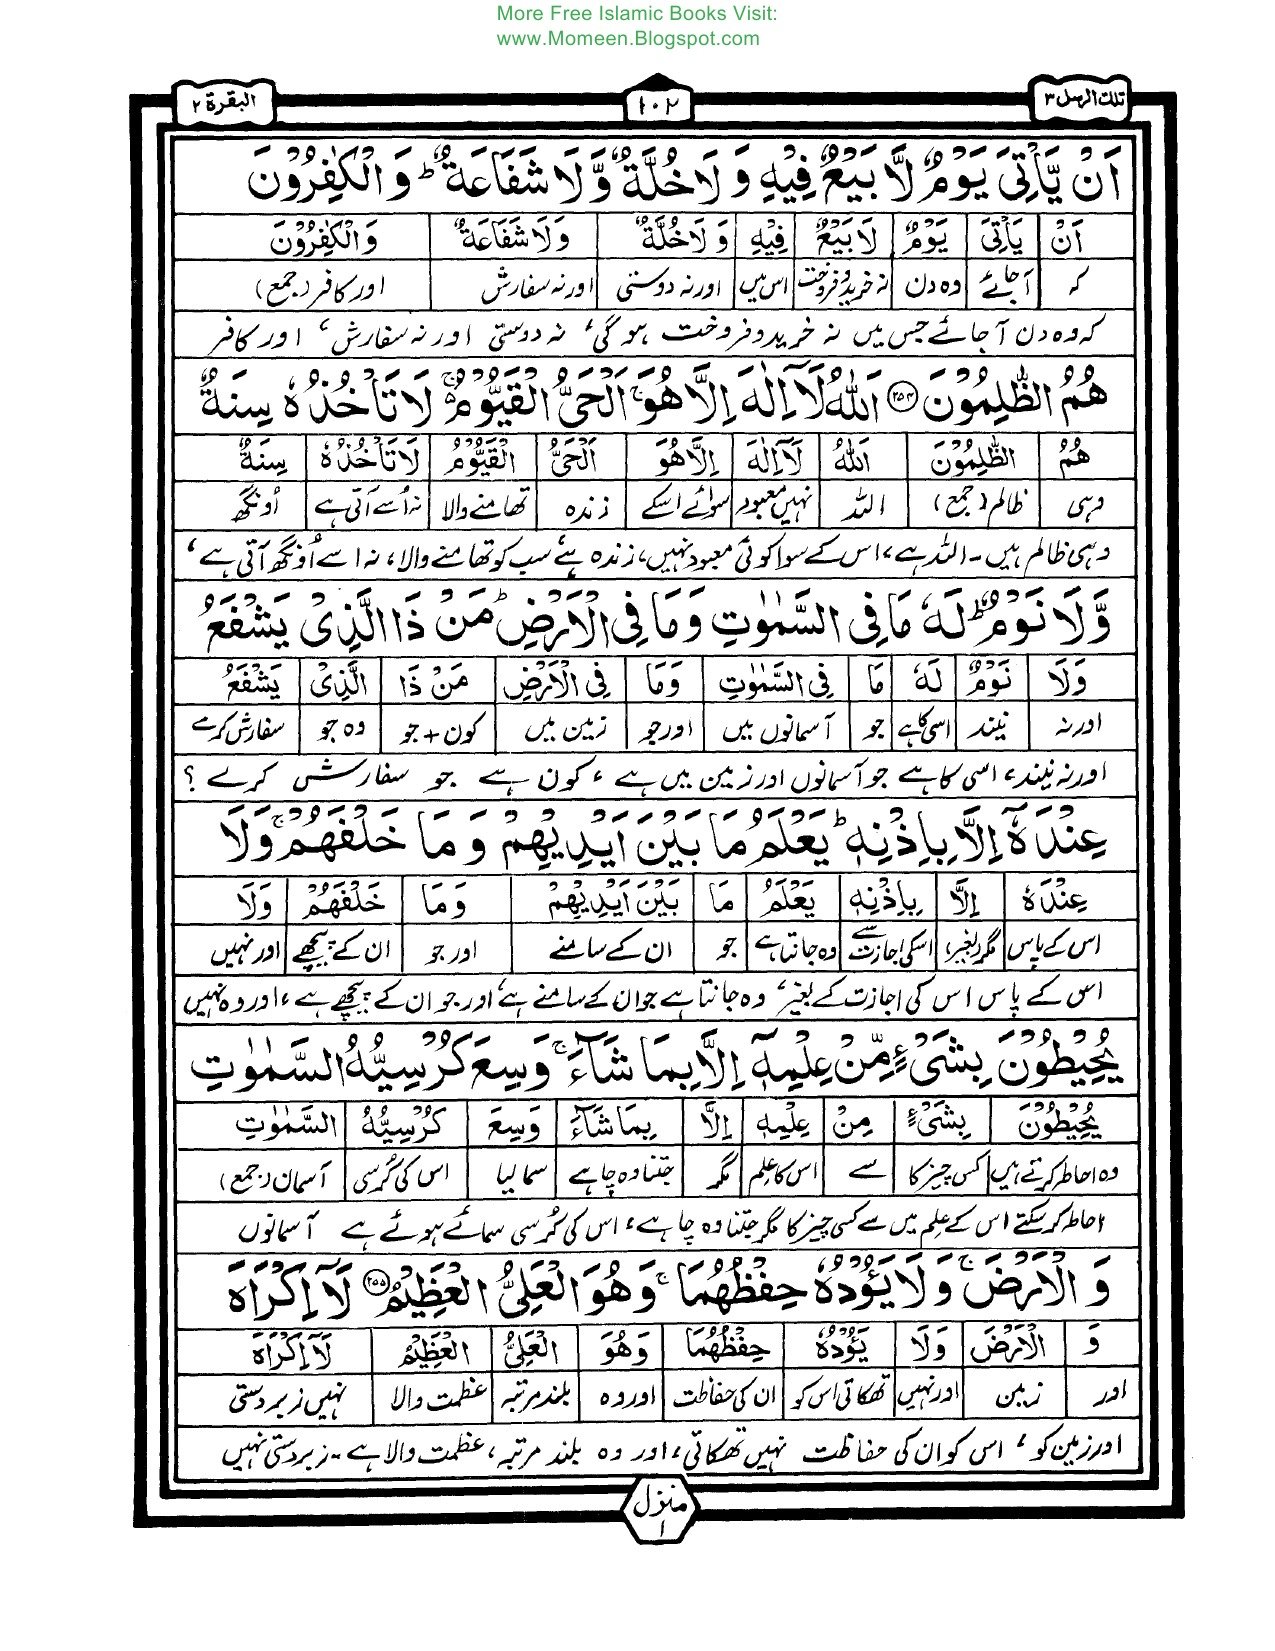 More Free Islamic Books Visit:
www.Momeen.Blogspot.com
تلك الرسل ۳
۱۰۲
البقرة ۲
اَنْ يَّاْتِىَ يَوْمٌ لَّا بَيْعٌ فِيْهِ وَ لَا خُلَّةٌ وَّلَا شَفَاعَةٌ ؕ وَ الْكٰفِرُوْنَ
اَنْ يَاْتِىَ يَوْمٌ لَا بَيْعٌ فِيْهِ وَ لَا خُلَّةٌ وَلَا شَفَاعَةٌ وَالْكٰفِرُوْنَ
کہ آجائے وہ دن نہ خریدو فروخت اس میں اور نہ دوستی اور نہ سفارش اور کافر (جمع)
کہ وہ دن آجائے جس میں نہ خریدو فروخت ہوگی، نہ دوستی اور نہ سفارش، اور کافر
هُمُ الظّٰلِمُوْنَ ۲۵۴ اَللّٰهُ لَاۤ اِلٰهَ اِلَّا هُوَ ۚ اَلْحَىُّ الْقَيُّوْمُ ۚ لَا تَاْخُذُهٗ سِنَةٌ
هُمُ الظّٰلِمُوْنَ اَللّٰهُ لَاۤ اِلٰهَ اِلَّا هُوَ اَلْحَىُّ الْقَيُّوْمُ لَا تَاْخُذُهٗ سِنَةٌ
وہی ظالم (جمع) اللہ نہیں معبود سوائے اسکے زندہ تھامنے والا نہ اُسے آتی ہے اُونگھ
وہی ظالم ہیں۔ اللہ ہے، اس کے سوا کوئی معبود نہیں، زندہ ہے سب کو تھامنے والا، نہ اسے اُونگھ آتی ہے،
وَّلَا نَوْمٌ ؕ لَهٗ مَا فِى السَّمٰوٰتِ وَمَا فِى الْاَرْضِ ؕ مَنْ ذَا الَّذِىْ يَشْفَعُ
وَلَا نَوْمٌ لَهٗ مَا فِى السَّمٰوٰتِ وَمَا فِى الْاَرْضِ مَنْ ذَا الَّذِىْ يَشْفَعُ
اور نہ نیند اسی کا ہے جو آسمانوں میں اور جو زمین میں کون + جو وہ جو سفارش کرے
اور نہ نیند، اسی کا ہے جو آسمانوں اور زمین میں ہے، کون ہے جو سفارش کرے ؟
عِنْدَهٗۤ اِلَّا بِاِذْنِهٖ ؕ يَعْلَمُ مَا بَيْنَ اَيْدِيْهِمْ وَ مَا خَلْفَهُمْ ۚ وَلَا
عِنْدَهٗ اِلَّا بِاِذْنِهٖ يَعْلَمُ مَا بَيْنَ اَيْدِيْهِمْ وَ مَا خَلْفَهُمْ وَلَا
اس کے پاس مگر (بغیر) اسکی اجازت سے وہ جانتا ہے جو ان کے سامنے اور جو ان کے پیچھے اور نہیں
اس کے پاس اس کی اجازت کے بغیر، وہ جانتا ہے جو ان کے سامنے ہے، اور جو ان کے پیچھے ہے، اور وہ نہیں
يُحِيْطُوْنَ بِشَىْءٍ مِّنْ عِلْمِهٖۤ اِلَّا بِمَا شَآءَ ۚ وَسِعَ كُرْسِيُّهُ السَّمٰوٰتِ
يُحِيْطُوْنَ بِشَىْءٍ مِنْ عِلْمِهٖ اِلَّا بِمَا شَآءَ وَسِعَ كُرْسِيُّهُ السَّمٰوٰتِ
وہ احاطہ کرتے ہیں کسی چیز کا سے اس کا علم مگر جتنا وہ چاہے سما لیا اس کی کُرسی آسمان (جمع)
احاطہ کرسکتے اس کے علم میں سے کسی چیز کا مگر جتنا وہ چاہے، اس کی کُرسی سمائے ہوئے ہے آسمانوں
وَ الْاَرْضَ ۚ وَ لَا يَئُوْدُهٗ حِفْظُهُمَا ۚ وَ هُوَ الْعَلِىُّ الْعَظِيْمُ ۲۵۵ لَاۤ اِكْرَاهَ
وَ الْاَرْضَ وَلَا يَئُوْدُهٗ حِفْظُهُمَا وَهُوَ الْعَلِىُّ الْعَظِيْمُ لَاۤ اِكْرَاهَ
اور زمین اور نہیں تھکاتی اس کو ان کی حفاظت اور وہ بلند مرتبہ عظمت والا نہیں زبردستی
اور زمین کو، اس کو ان کی حفاظت نہیں تھکاتی، اور وہ بلند مرتبہ، عظمت والا ہے۔ زبردستی نہیں
منزل
۱